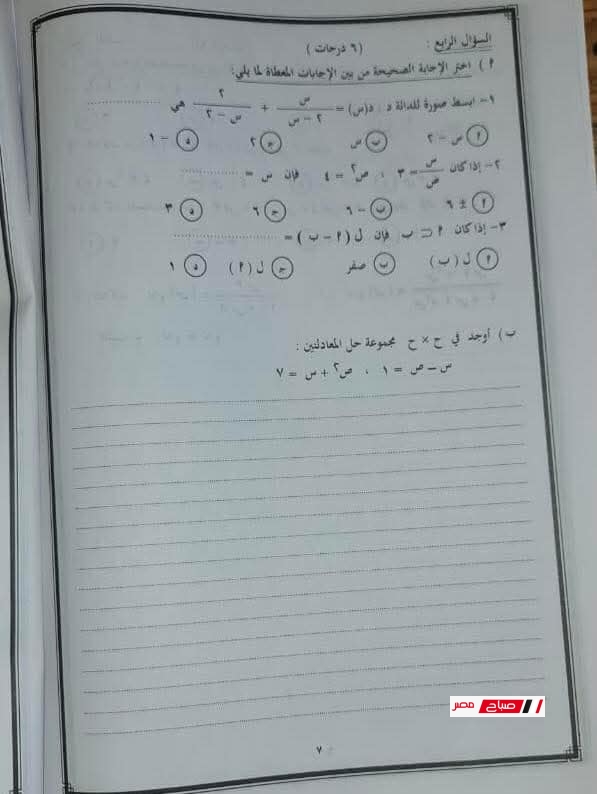 السؤال الرابع : (٦ درجات )
٢ ) اختر الإجابة الصحيحة من بين الإجابات المعطاة لما يلي:
١- ابسط صورة للدالة د : د(س) = س / (٢ - س) + ٢ / (س - ٢) هي ............
أ س - ٢ ب س ج ٢ د - ١
٢- إذا كان س / ص = ٣ ، ص٢ = ٤ فإن س = ............
أ ± ٦ ب - ٦ ج ٦ د ٣
٣- إذا كان ٢ ⊂ ب فإن ل ( ٢ - ب ) = ............
أ ل ( ب ) ب صفر ج ل ( ٢ ) د ١
ب ) أوجد في ح × ح مجموعة حل المعادلتين :
س - ص = ١ ، ص٢ + س = ٧
صباح مصر
٧